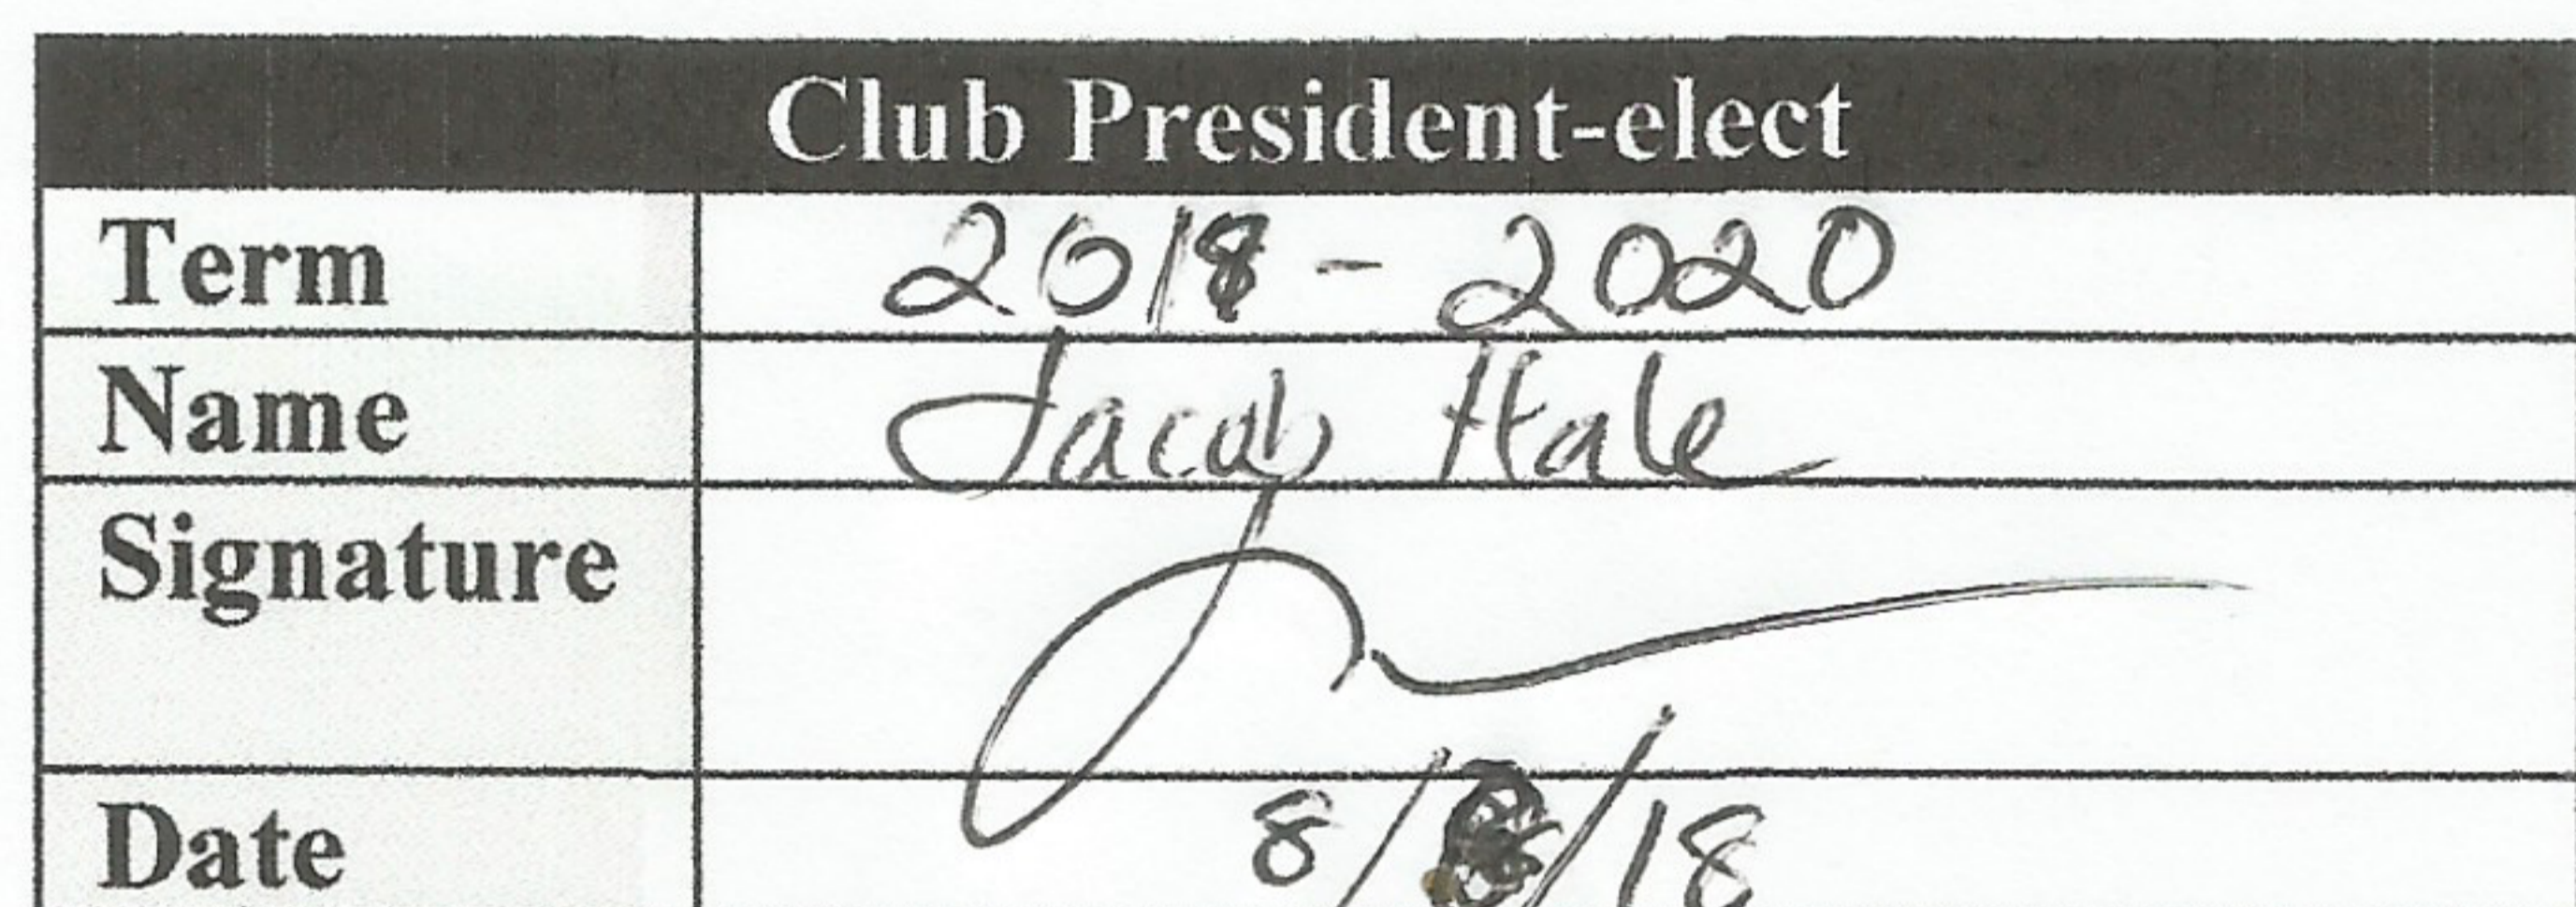 Club President-elect
Term 2018 - 2020
Name Jacob Hale
Signature
Date 8/ /18